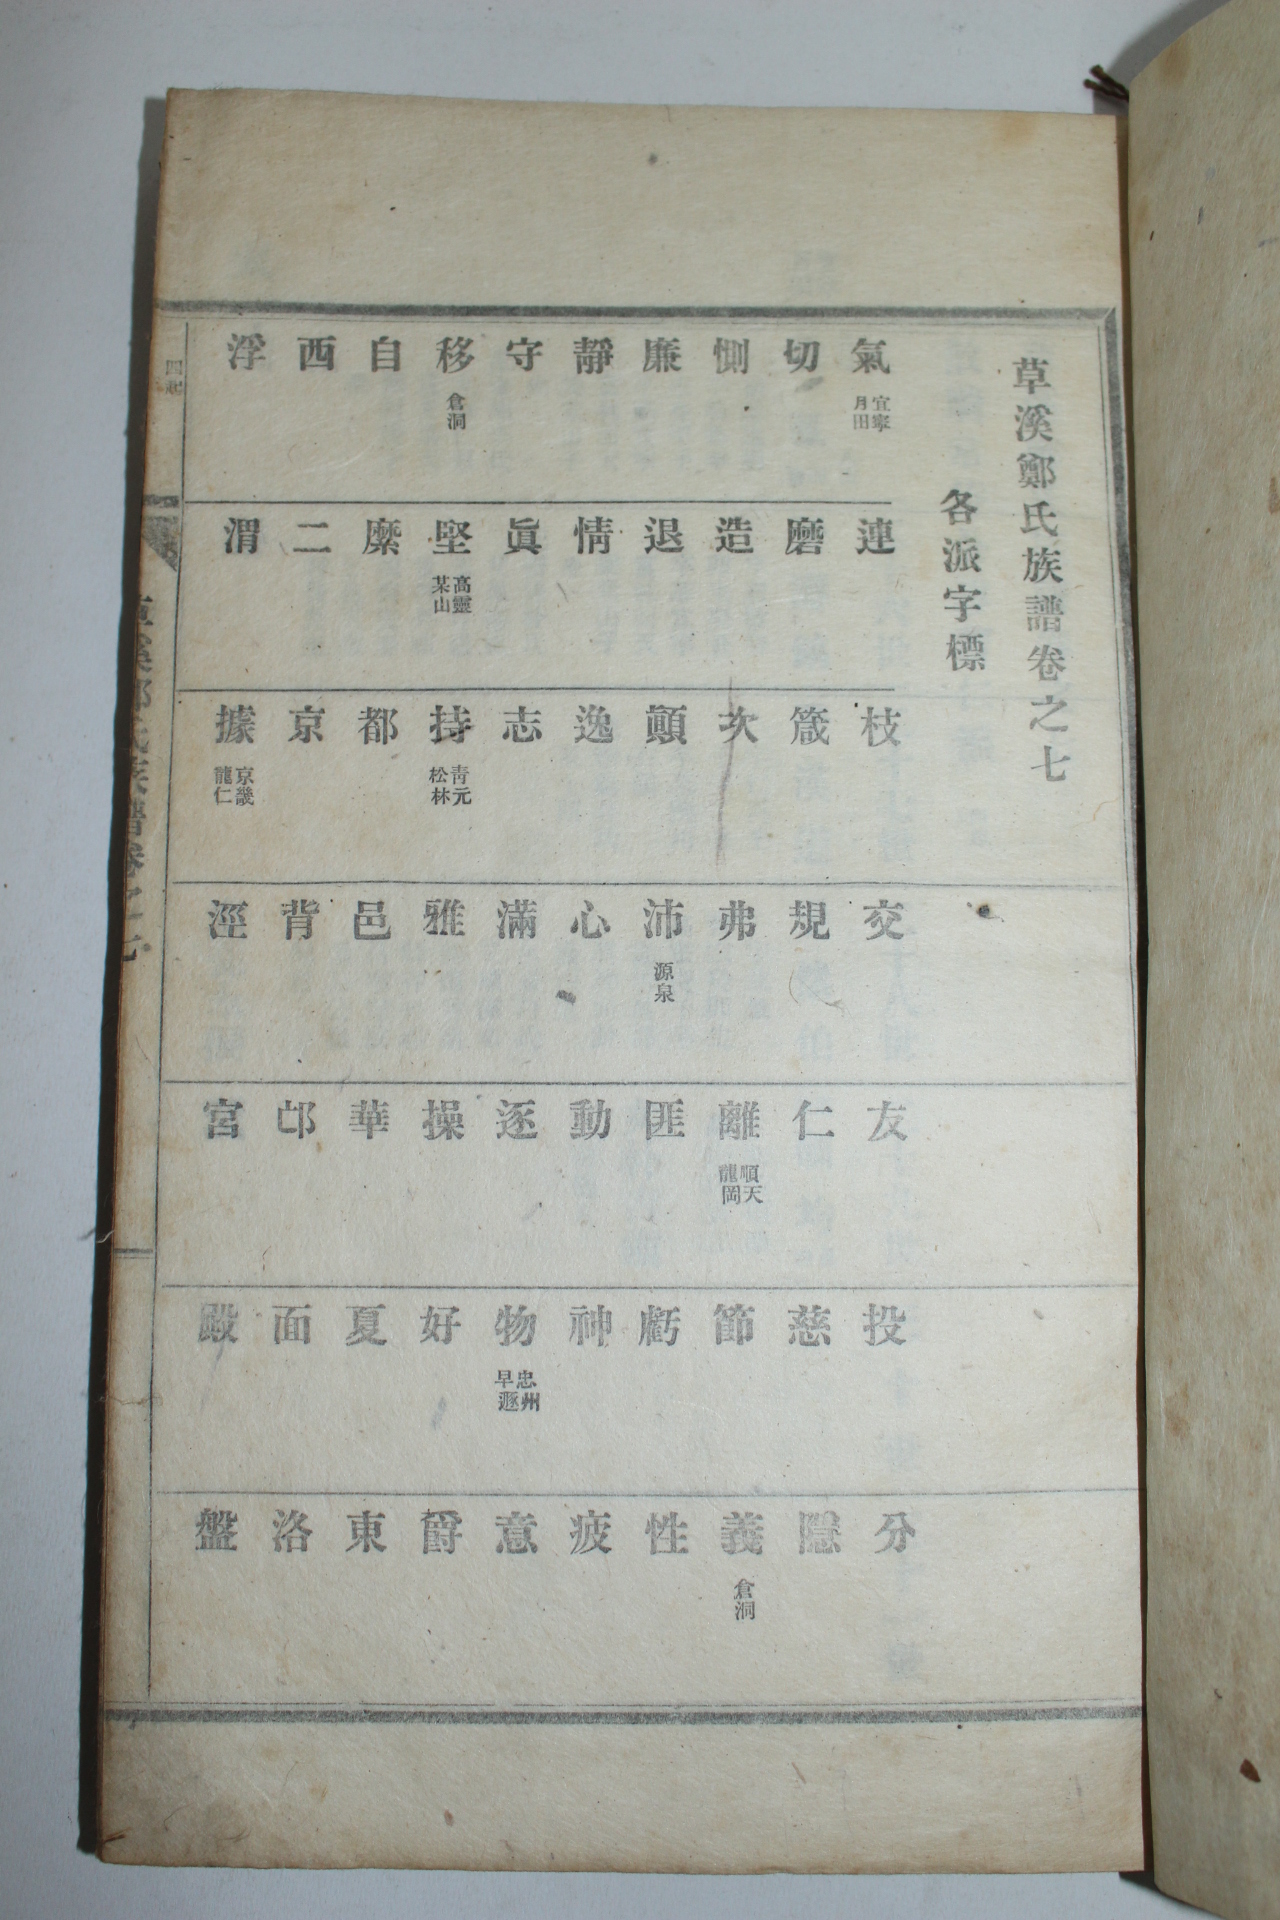 草溪鄭氏族譜卷之七
各派字標
氣 宜寧月田 連 枝 交 友 投 分
切 磨 箴 規 仁 慈 隱
惻 造 次 弗 離 順天龍岡 節 義 倉洞
廉 退 顚 沛 源泉 匪 虧 性
靜 情 逸 心 動 神 疲
守 眞 志 滿 逐 物 忠州早遯 意
移 倉洞 堅 高靈某山 持 靑元松林 雅 操 好 爵
自 縻 都 邑 華 夏 東
西 二 京 背 邙 面 洛
浮 渭 據 京畿龍仁 涇 宮 殿 盤
草溪鄭氏族譜卷之七